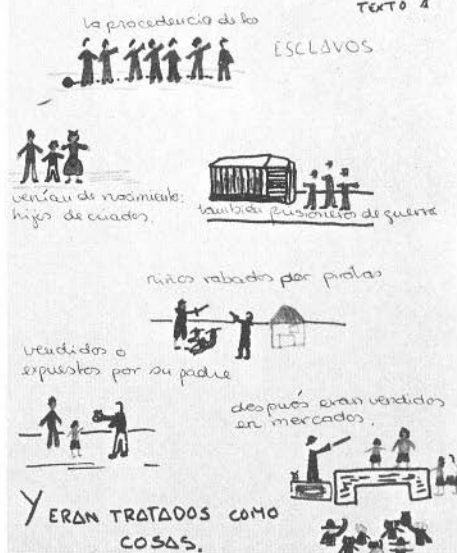 TEXTO 4
La procedencia de los
ESCLAVOS
venían de nacimiento:
hijos de criados.
también prisioneros de guerra
niños robados por piratas
vendidos o
expuestos por su padre
después eran vendidos
en mercados.
Y ERAN TRATADOS COMO
COSAS.